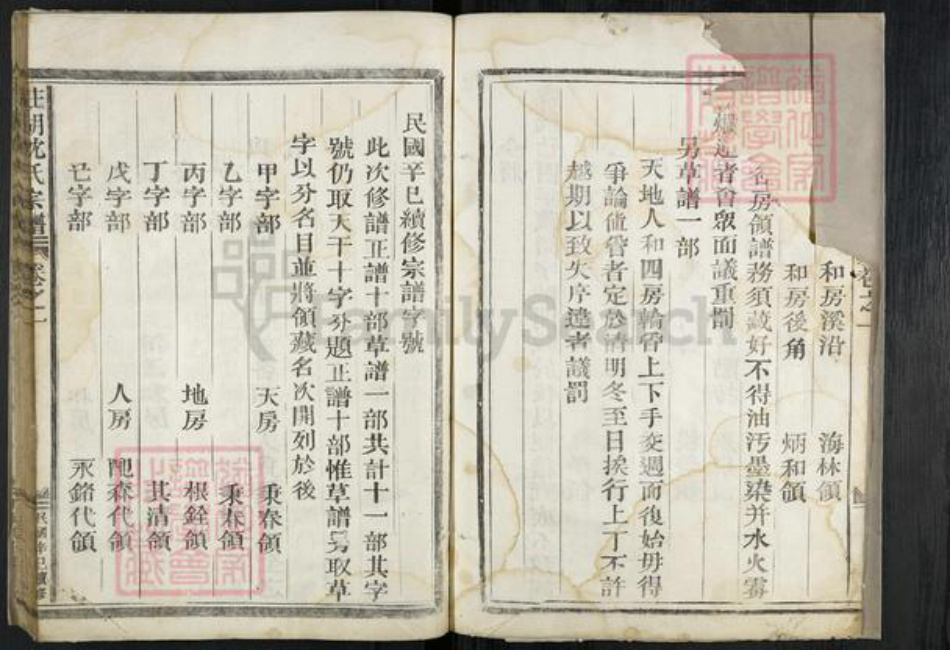 和房溪沿　海林領
和房後角　炳和領
各房領譜務須藏好不得油汚墨染并水火霉
違者會眾面議重罰
另草譜一部
天地人和四房輪管上下手交週而復始毋得
爭論值管者定於清明冬至日挨行上丁不許
越期以致失序違者議罰
民國辛巳續修宗譜字號
此次修譜正譜十部草譜一部共計十一部其字
號仍取天干十字分題正譜十部惟草譜另取草
字以分名目並將領藏名次開列於後
甲字部　天房　秉春領
乙字部　秉春領
丙字部　地房　根銓領
丁字部　其清領
戊字部　人房　森代領
己字部　永鉻代領
沈氏宗譜　卷之一
民國辛巳續修
FamilySearch